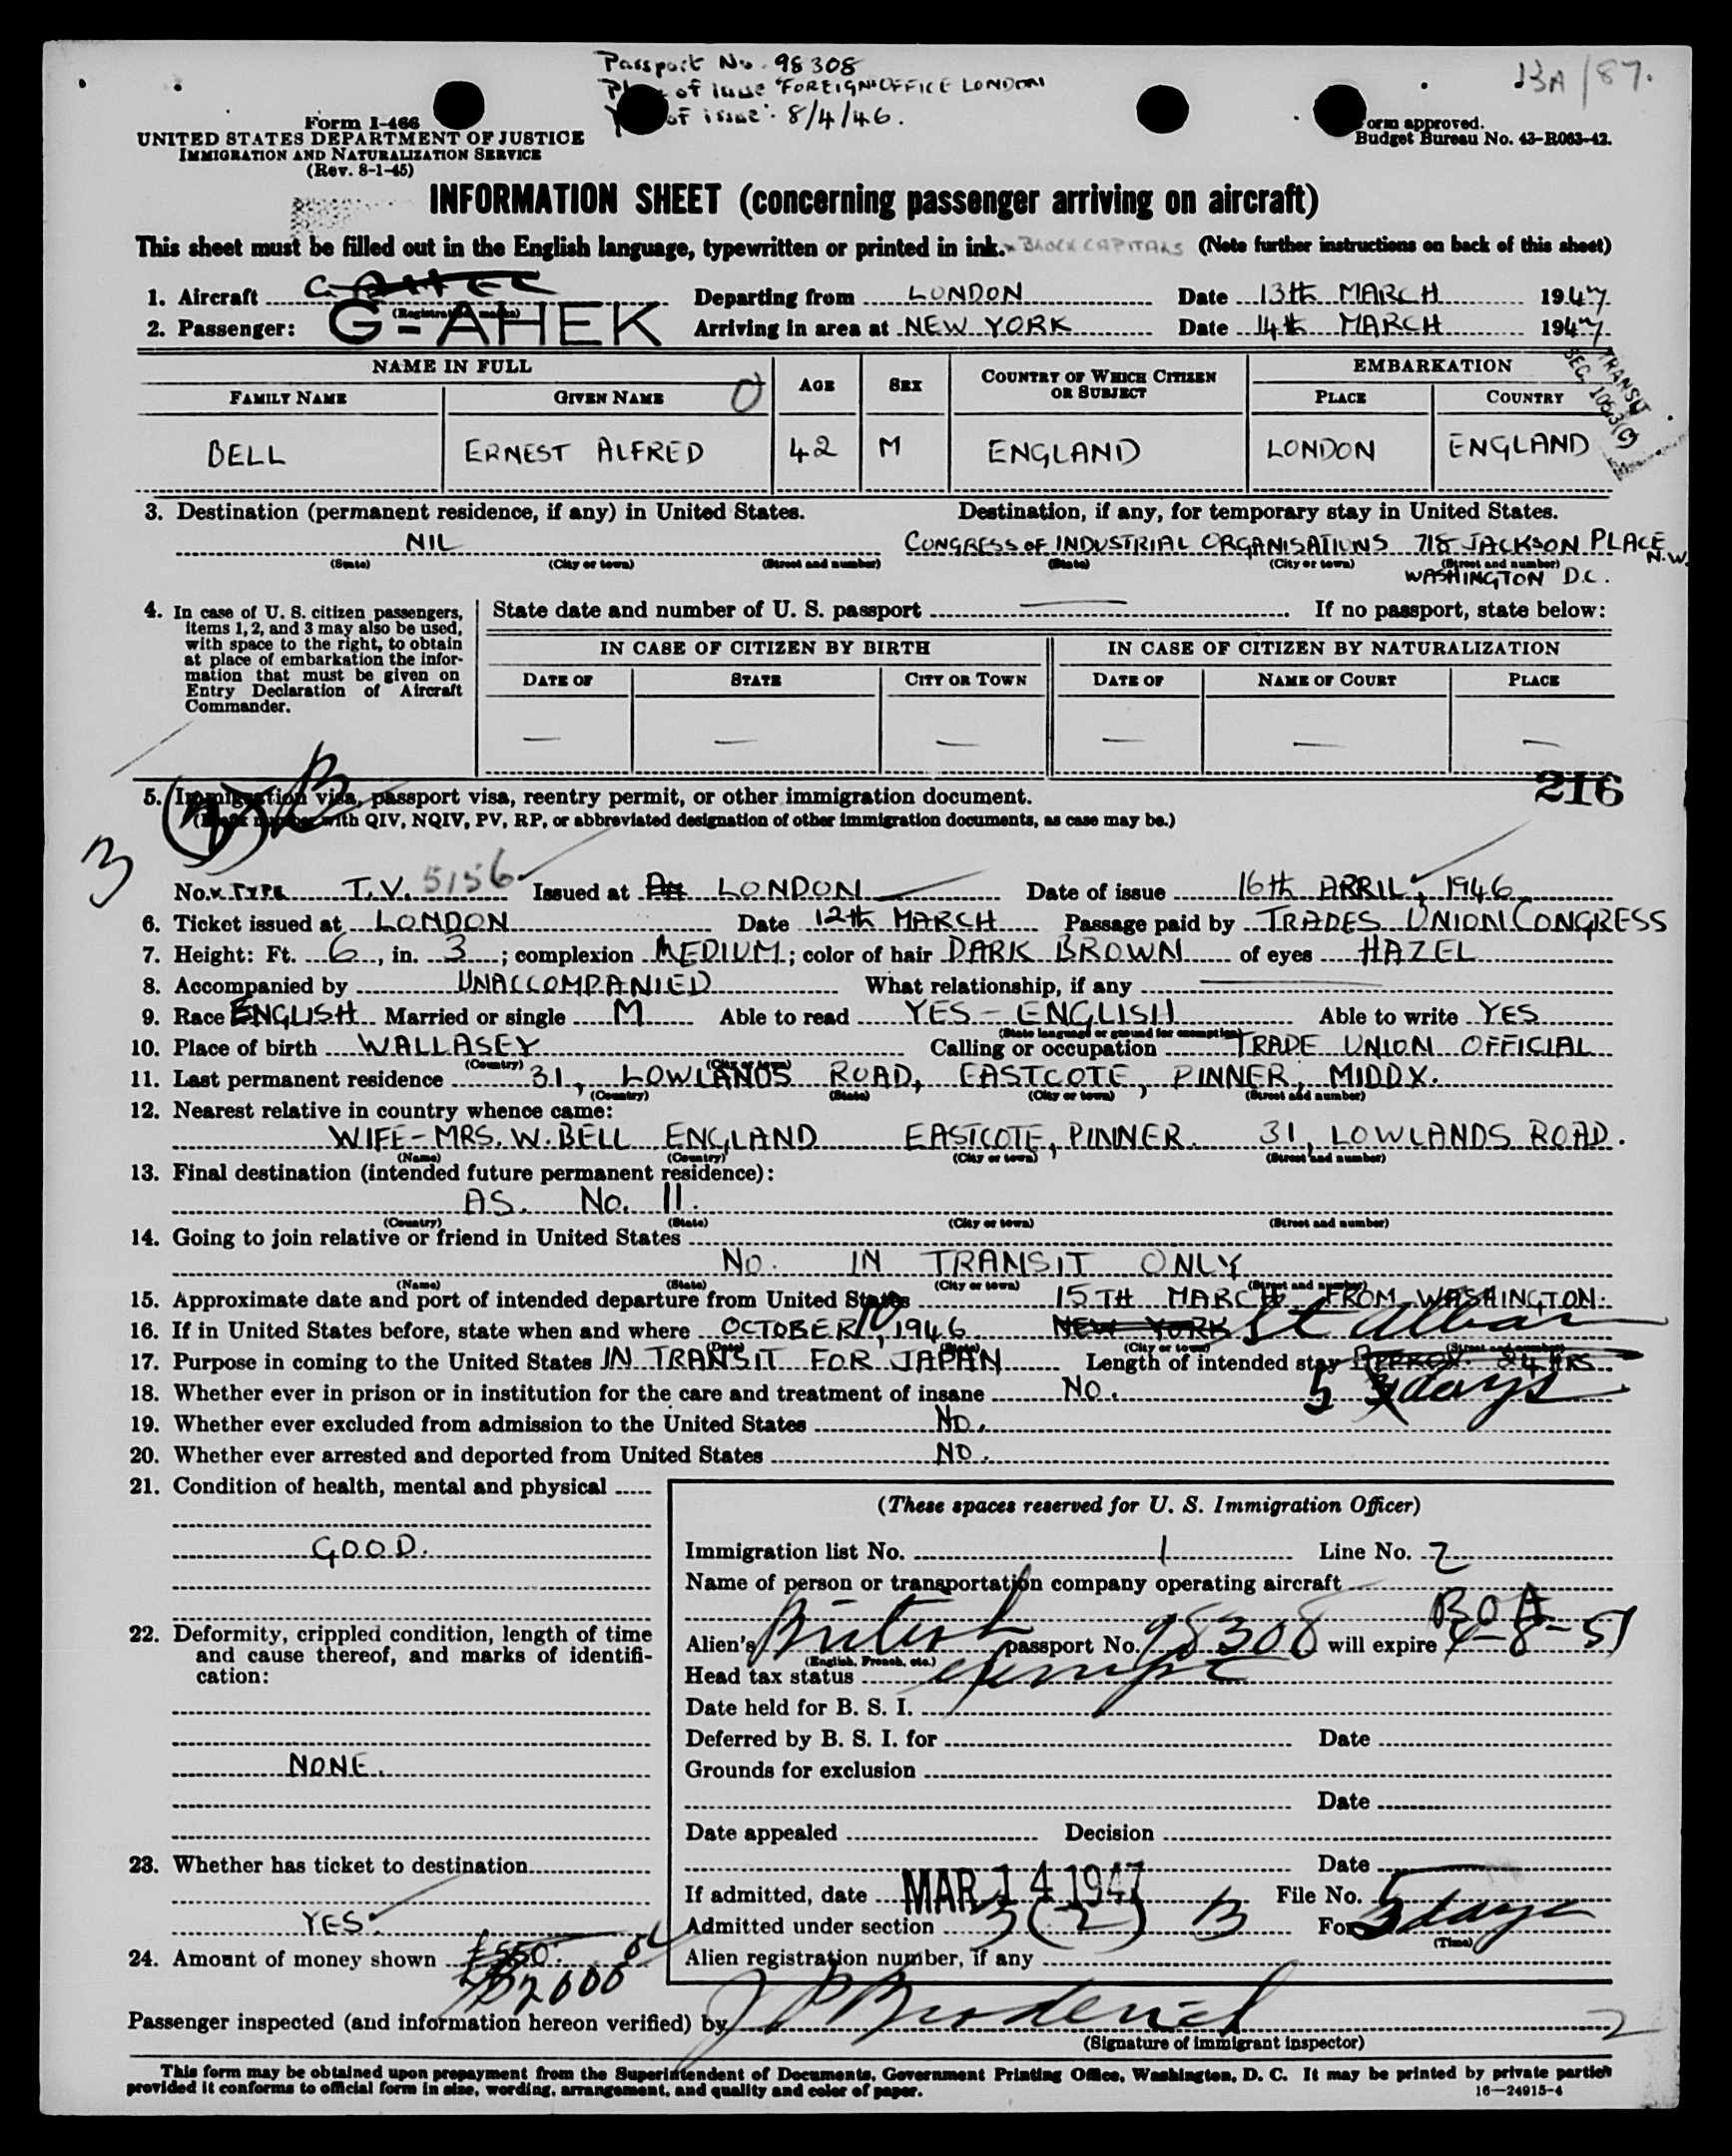 Passport No. 98308
13A/87.
of issue "FOREIGN OFFICE LONDON
of issue: 8/4/46.
Form I-466
UNITED STATES DEPARTMENT OF JUSTICE
IMMIGRATION AND NATURALIZATION SERVICE
(Rev. 8-1-45)
orm approved.
Budget Bureau No. 43-R063-42.
INFORMATION SHEET (concerning passenger arriving on aircraft)
This sheet must be filled out in the English language, typewritten or printed in ink. BLOCK CAPITALS (Note further instructions on back of this sheet)
1. Aircraft Departing from LONDON Date 13th MARCH 1947
(Registration marks)
2. Passenger: G-AHEK Arriving in area at NEW YORK Date 14th MARCH 1947
TRANSIT
SEC. 105.3(C)
NAME IN FULL AGE SEX COUNTRY OF WHICH CITIZEN OR SUBJECT EMBARKATION
FAMILY NAME GIVEN NAME PLACE COUNTRY
BELL ERNEST ALFRED 42 M ENGLAND LONDON ENGLAND
3. Destination (permanent residence, if any) in United States. Destination, if any, for temporary stay in United States.
NIL CONGRESS OF INDUSTRIAL ORGANISATIONS 718 JACKSON PLACE N.W.
(State) (City or town) (Street and number) (State) (City or town) (Street and number)
WASHINGTON D.C.
4. In case of U. S. citizen passengers,
items 1, 2, and 3 may also be used,
with space to the right, to obtain
at place of embarkation the infor-
mation that must be given on
Entry Declaration of Aircraft
Commander.
State date and number of U. S. passport — If no passport, state below:
IN CASE OF CITIZEN BY BIRTH IN CASE OF CITIZEN BY NATURALIZATION
DATE OF STATE CITY OR TOWN DATE OF NAME OF COURT PLACE
— — — — — —
216
5. Immigration visa, passport visa, reentry permit, or other immigration document.
with QIV, NQIV, PV, RP, or abbreviated designation of other immigration documents, as case may be.)
3
No. & TYPE T.V. 5156 Issued at LONDON Date of issue 16th APRIL, 1946
6. Ticket issued at LONDON Date 12th MARCH Passage paid by TRADES UNION CONGRESS
7. Height: Ft. 6, in. 3; complexion MEDIUM; color of hair DARK BROWN of eyes HAZEL
8. Accompanied by UNACCOMPANIED What relationship, if any —
9. Race ENGLISH Married or single M Able to read YES - ENGLISH Able to write YES
(State language or ground for exemption)
10. Place of birth WALLASEY Calling or occupation TRADE UNION OFFICIAL
(Country) (City or town)
11. Last permanent residence 31, LOWLANDS ROAD, EASTCOTE, PINNER, MIDDX.
(Country) (State) (City or town) (Street and number)
12. Nearest relative in country whence came:
WIFE - MRS. W. BELL ENGLAND EASTCOTE, PINNER. 31, LOWLANDS ROAD.
(Name) (Country) (City or town) (Street and number)
13. Final destination (intended future permanent residence):
AS. No. 11.
(Country) (State) (City or town) (Street and number)
14. Going to join relative or friend in United States
NO. IN TRANSIT ONLY
(Name) (State) (City or town) (Street and number)
15. Approximate date and port of intended departure from United States 15TH MARCH FROM WASHINGTON.
16. If in United States before, state when and where OCTOBER, 1946 NEW YORK St Albans
(Date) (State) (City or town) (Street and number)
17. Purpose in coming to the United States IN TRANSIT FOR JAPAN Length of intended stay APPROX. 24 HRS
5 days
18. Whether ever in prison or in institution for the care and treatment of insane NO.
19. Whether ever excluded from admission to the United States NO.
20. Whether ever arrested and deported from United States NO.
21. Condition of health, mental and physical
GOOD.
22. Deformity, crippled condition, length of time
and cause thereof, and marks of identifi-
cation:
NONE.
23. Whether has ticket to destination
YES.
24. Amount of money shown £550.
$2000
(These spaces reserved for U. S. Immigration Officer)
Immigration list No. 1 Line No. 2
Name of person or transportation company operating aircraft
BOA
Alien's British passport No. 98308 will expire 4-8-51
(English, French, etc.)
Head tax status exempt
Date held for B. S. I.
Deferred by B. S. I. for Date
Grounds for exclusion
Date
Date appealed Decision
Date
If admitted, date MAR 14 1947 File No.
Admitted under section 3(2) B For 5 days
(Time)
Alien registration number, if any
Passenger inspected (and information hereon verified) by J P Broderick
2
(Signature of immigrant inspector)
This form may be obtained upon prepayment from the Superintendent of Documents, Government Printing Office, Washington, D. C. It may be printed by private parties
provided it conforms to official form in size, wording, arrangement, and quality and color of paper.
16—24915-4